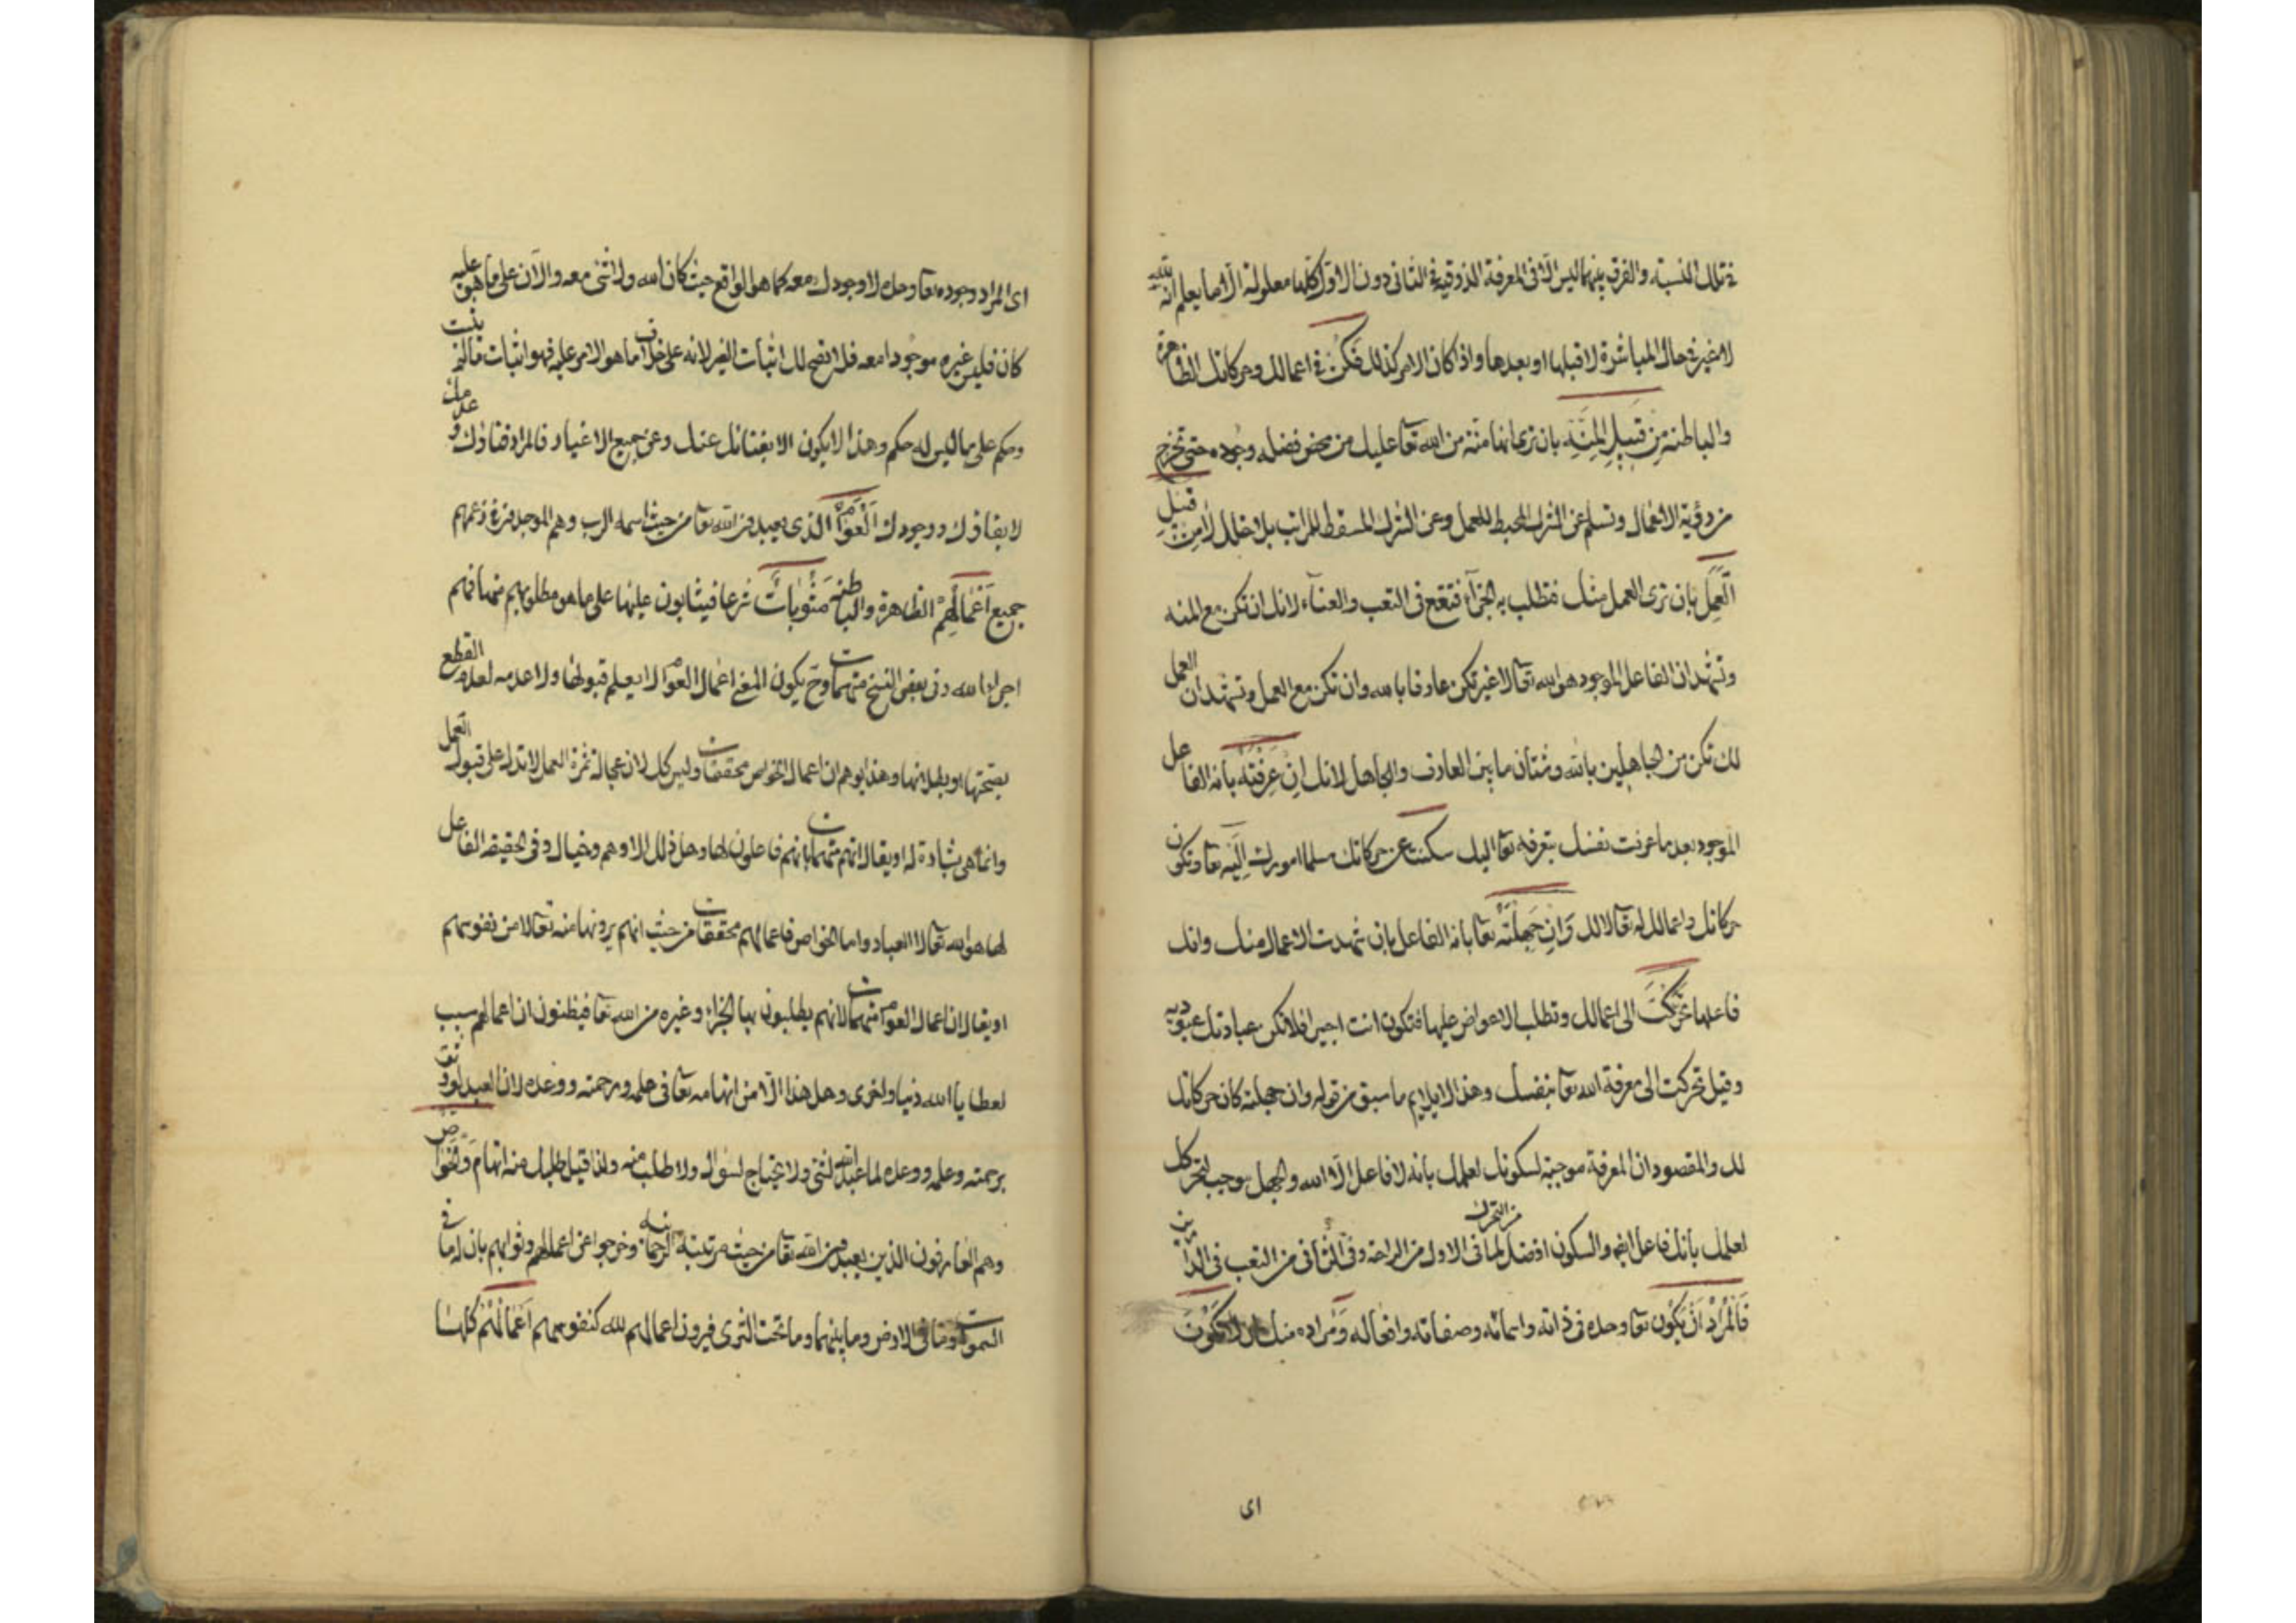 في تلك النسبة والفرق بينهما ليس الا فى المعرفة الذوقية فى الثانى دون الاول فكلها معلولة الا ما يعلم انه لله
لا غير فى حال المباشرة لا قبلها او بعدها واذا كان الامر كذلك فكن فى اعمالك وحركاتك الظاهرة
والباطنة من قبيل المنة بان ترى انها منّة من الله تعا عليك من محض فضله وجوده حتى تخرج
من رؤية الاعمال وتسلم عن الشرك المحيط للعمل وعن الشرك المسقط للمراتب بلا خلل لا من قبيل
العمل بان ترى العمل منك فتطلب به الجزآء فتقع فى التعب والعنآء لانك ان تكن مع المنه
وتشهد ان الفاعل الموجود هو الله تعالى لا غير تكن عارفا بالله وان تكن مع العمل وتشهد ان العمل
لك تكن من الجاهلين بالله وشتان ما بين العارف والجاهل لانك ان عرفته بانه الفاعل
الموجود بعد ما عرفت نفسك بتعرفه تعا اليك سكنت عن حركاتك مسلما امورك اليه تعا وتكون
حركاتك واعمالك له تعالى لا لك وان جهلته تعا بانه الفاعل بان شهدت الاعمال منك وانك
فاعلها تحركت الى اعمالك وتطلب الاعواض عليها فتكون انت اجيرا فلا تكن عبادتك عبودية
وقيل تحركت الى معرفة الله تعا بنفسك وهذا لا يلايم ما سبق من قوله وان جهلته كان حركاتك
لك والمقصود ان المعرفة موجبة لسكونك لعلمك بانه لا فاعل الا الله والجهل موجب لتحركك
لعلمك بانك فاعل ايضا والسكون افضل من التحرك لما فى الاول من الراحة وفى الثانى من التعب فى الدارين
فالمراد ان يكون تعا وحده فى ذاته واسمائه وصفاته وافعاله ومراده منك ان لا تكون
اى
اى المراد وجوده تعا وحده لا وجودك معه كما هو الواقع حيث كان الله ولا شئ معه والآن على ما هو عليه
كان فليس غيره موجودا معه فلا يصح لك اثبات الغير لانه على خلاف ما هو الامر عليه فهو اثبات ما لم يثبت
وحكم على ما ليس له حكم وهذا لا يكون الا بفنائك عنك وعن جميع الاغيار فالمراد فناؤك وعدمك
لا بقاؤك ووجودك العوام الذى يعبدون الله تعا من حيث اسمه الرب وهم الموجدون فى زعمهم
جميع اعمالهم الظاهرة والباطنة مثوبات شرعا فيثابون عليها على ما هو مطلوبهم منها فهم
اجراء الله وفى بعض النسخ متهمات وح يكون المعنى اعمال العوام لا يعلم قبولها ولا عدمه لعدم القطع
بصحتها او بطلانها وهذا يوهم ان اعمال الخواص محققات وليس كل لان عجالة ثمرة العمل لا تدل على قبول العمل
وانما هى بشارة له او يقال انهم متهمات بانهم فاعلون لها وهل ذلك الا وهم وخيال وفى الحقيقة الفاعل
لها هو الله تعالى لا العباد واما الخواص فاعمالهم محققات من حيث انهم يرونها منه تعالى لا من نفوسهم
او يقال ان اعمال العوام متهمات لانهم يطلبون بها الجزاء وغيره من الله تعا فيظنون ان اعمالهم سبب
لعطايا الله دنيا واخرى وهل هذا الا من اتهامه تعا فى حلمه ورحمته ووعده لان العبد لو وثق
برحمته وعلمه ووعده لما عبد الله لشئ ولا يحتاج لسؤال ولا طلب منه ولذا قيل طلبك منه اتهام وخواص
وهم العارفون الذين يعبدون الله تعا من حيث مرتبته الرحمانية وخرجوا عن اعمالهم وثوابهم بان له ما فى
السموات وما فى الارض وما بينهما وما تحت الثرى فيرون اعمالهم لله كنفوسهم اعمالهم كلها